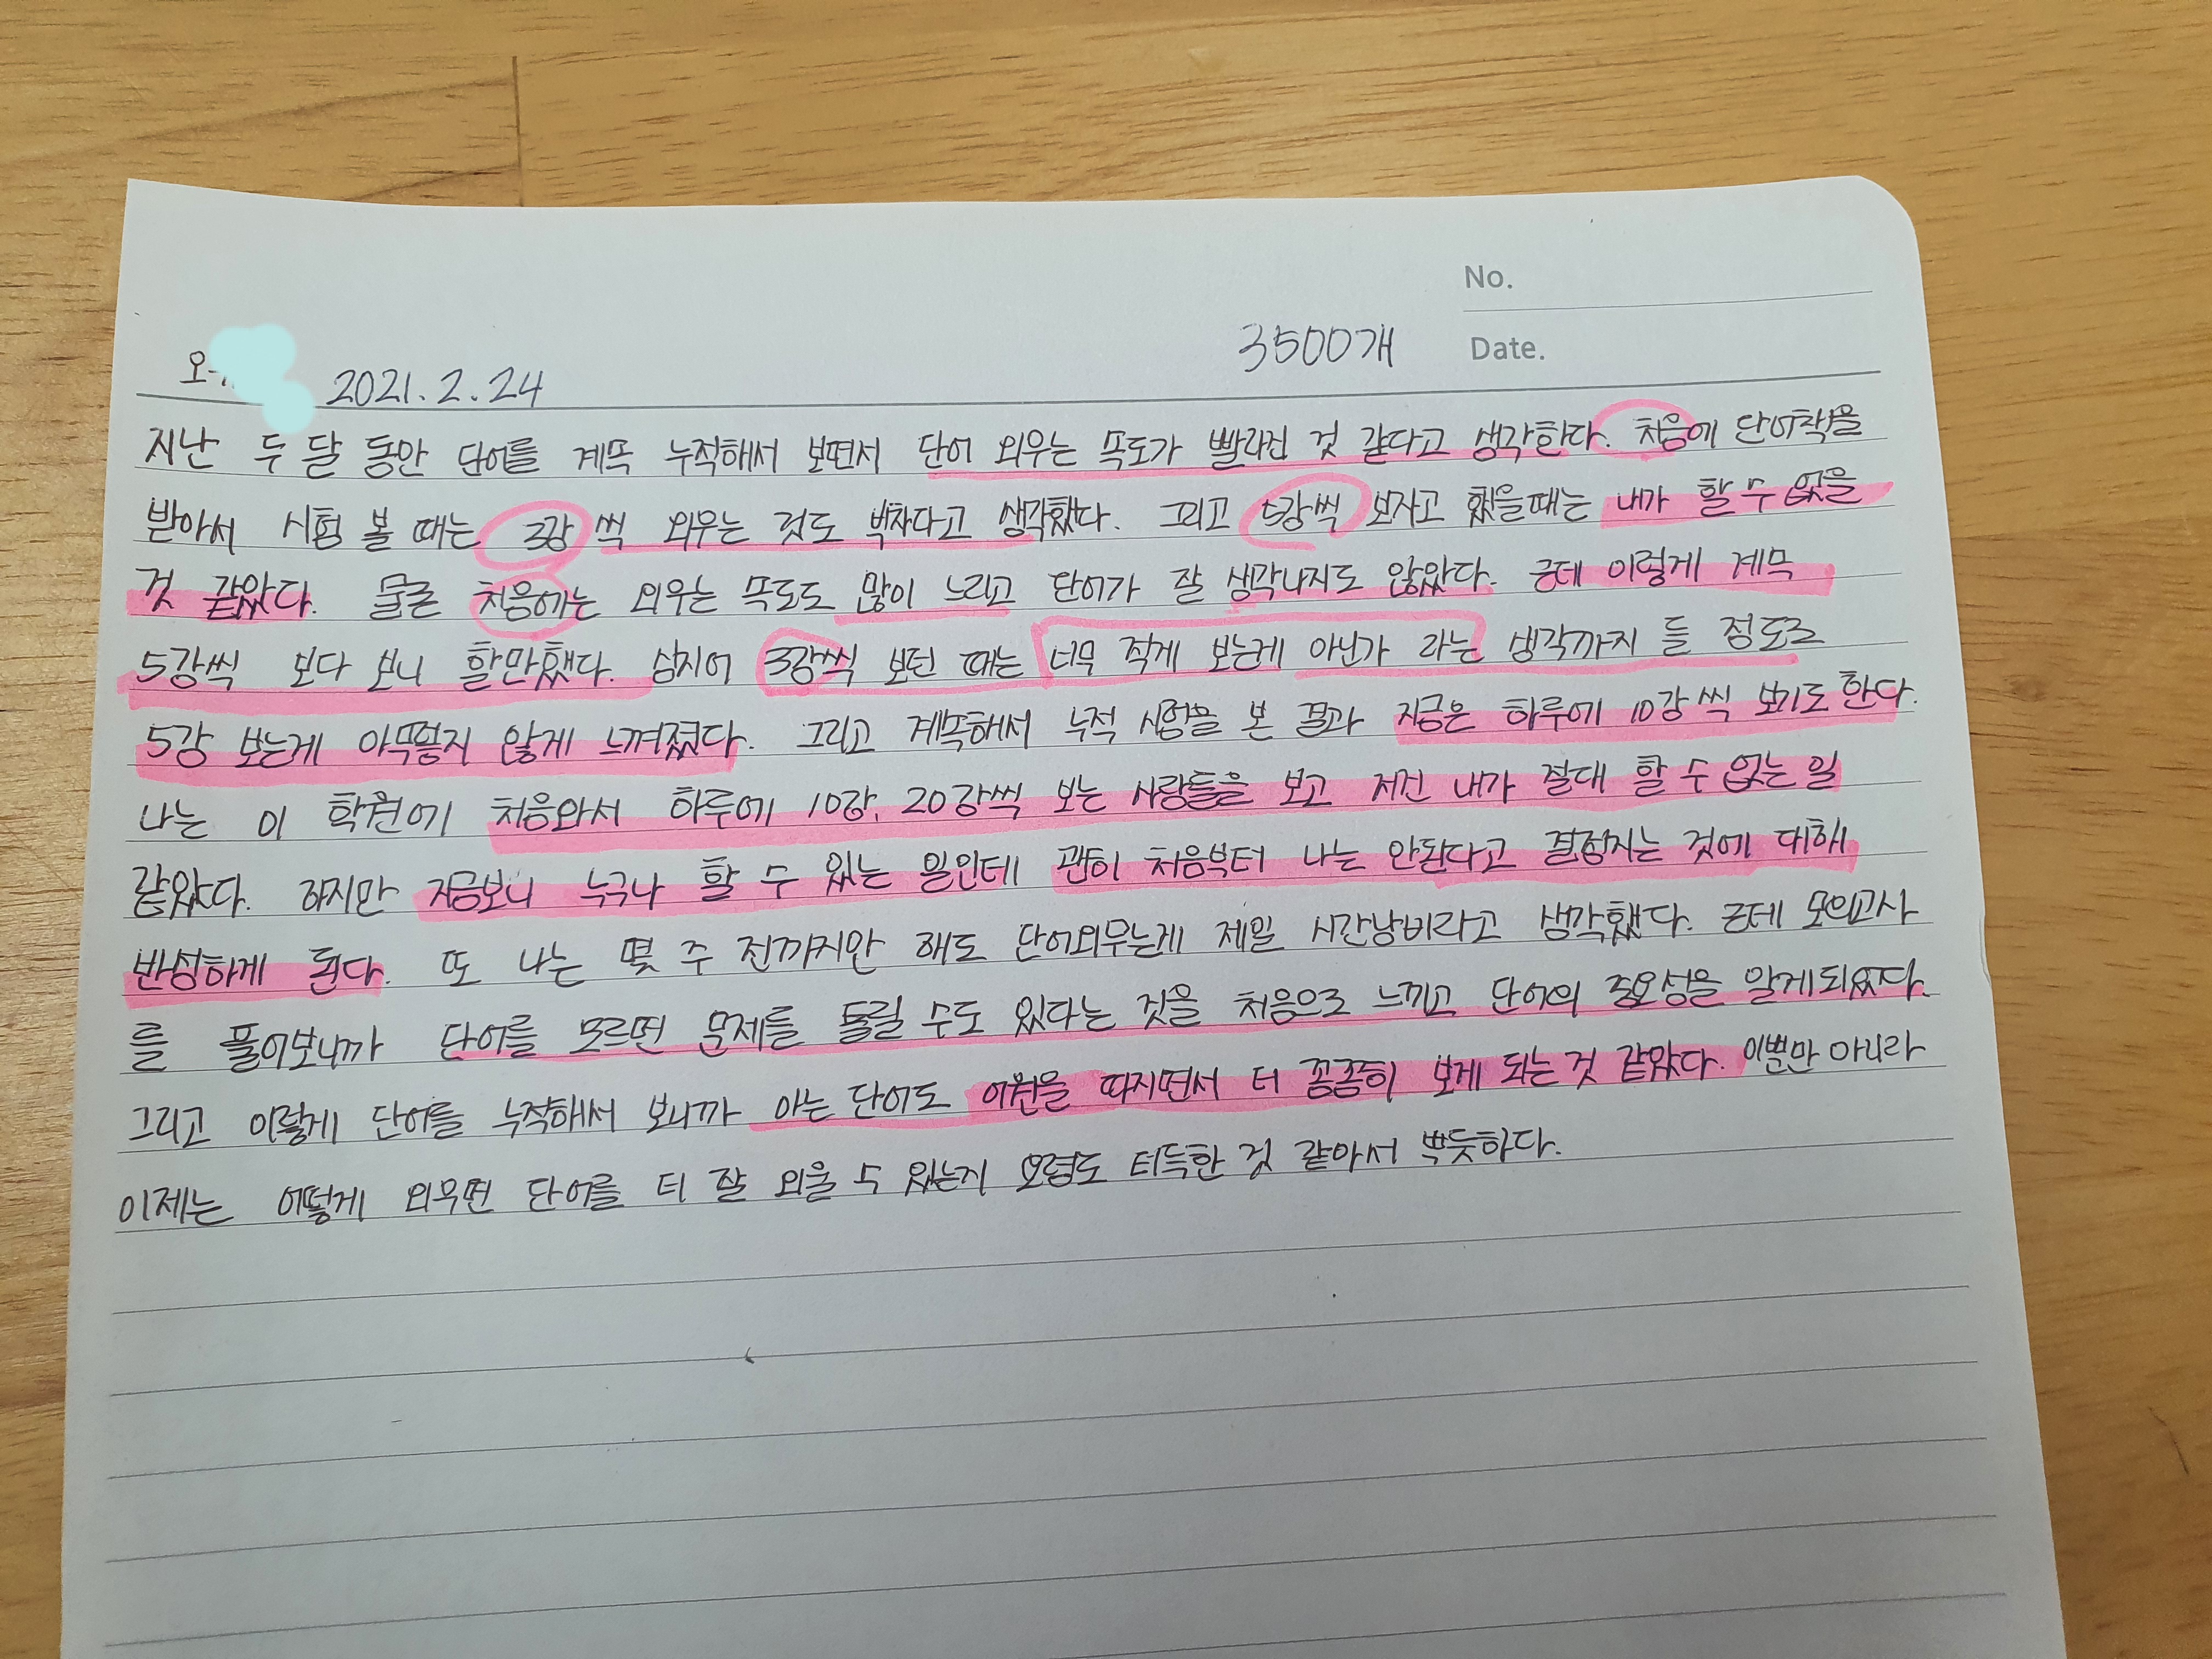 No.
3500개
Date.
오
2021. 2. 24
지난 두 달 동안 단어를 계속 누적해서 보면서 단어 외우는 속도가 빨라진 것 같다고 생각한다. 처음에 단어책을
받아서 시험 볼 때는 3강 씩 외우는 것도 벅차다고 생각했다. 그리고 5강씩 보자고 했을때는 내가 할 수 없을
것 같았다. 물론 처음에는 외우는 속도도 많이 느리고 단어가 잘 생각나지도 않았다. 근데 이렇게 계속
5강씩 보다 보니 할만했다. 심지어 3강씩 보던 때는 너무 적게 보는게 아닌가 라는 생각까지 들 정도로
5강 보는게 아무렇지 않게 느껴졌다. 그리고 계속해서 누적 시험을 본 결과 지금은 하루에 10강 씩 보기도 한다.
나는 이 학원에 처음와서 하루에 10강, 20강씩 보는 사람들을 보고 저건 내가 절대 할 수 없는 일
같았다. 하지만 지금보니 누구나 할 수 있는 일인데 괜히 처음부터 나는 안된다고 결정지는 것에 대해
반성하게 된다. 또 나는 몇 주 전까지만 해도 단어외우는게 제일 시간낭비라고 생각했다. 근데 모의고사
를 풀어보니까 단어를 모르면 문제를 틀릴 수도 있다는 것을 처음으로 느끼고 단어의 중요성을 알게되었다.
그리고 이렇게 단어를 누적해서 보니까 아는 단어도 어원을 따지면서 더 꼼꼼히 보게 되는 것 같았다. 이뿐만 아니라
이제는 어떻게 외우면 단어를 더 잘 외울 수 있는지 요령도 터득한 것 같아서 뿌듯하다.